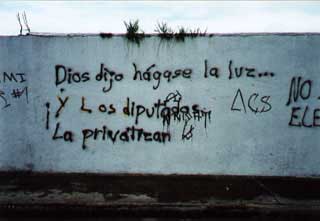 Dios dijo hágase la luz...
¡Y Los diputados
La privatizan
ACS
MI
#1
NO
ELE